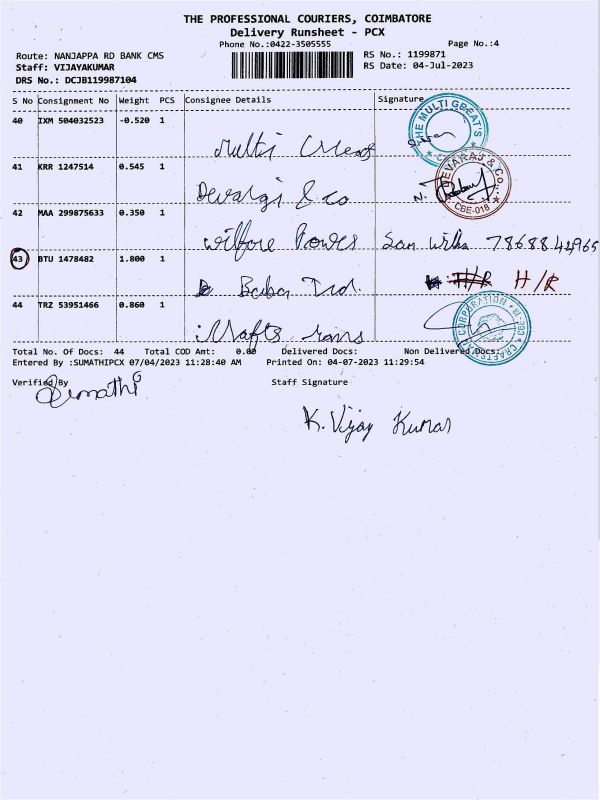 THE PROFESSIONAL COURIERS, COIMBATORE
Delivery Runsheet - PCX
Phone No.:0422-3505555 Page No.:4
Route: NANJAPPA RD BANK CMS RS No.: 1199871
Staff: VIJAYAKUMAR RS Date: 04-Jul-2023
DRS No.: DCJB119987104
S No Consignment No Weight PCS Consignee Details Signature
40 IXM 504032523 -0.520 1
Multi
THE MULTI GREAT'S
41 KRR 1247514 0.545 1
& co
DEVARAJ & Co. CBE-018
42 MAA 299875633 0.350 1
43 BTU 1478482 1.800 1
Baba H/R
44 TRZ 53951466 0.860 1
CORPORATION
Total No. Of Docs: 44 Total COD Amt: 0.00 Delivered Docs: Non Delivered Docs:
Entered By :SUMATHIPCX 07/04/2023 11:28:40 AM Printed On: 04-07-2023 11:29:54
Verified By Staff Signature
Sumathi
K. Vijay Kumar